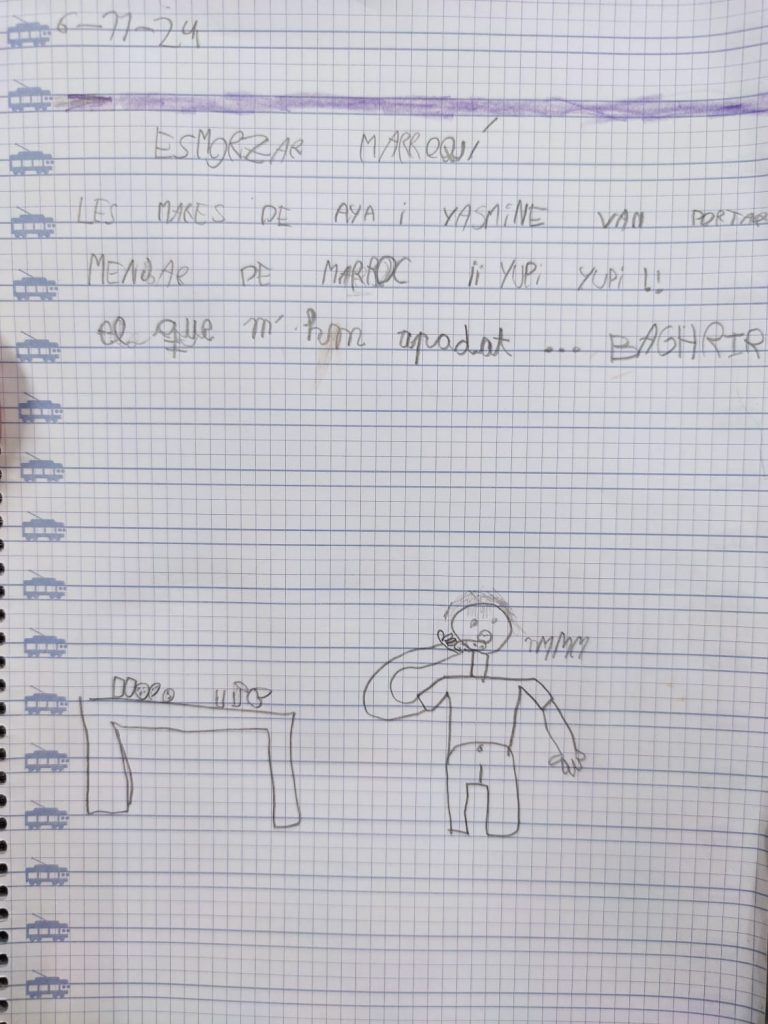 6-11-24
ESMORZAR MARROQUÍ
LES MARES DE AYA i YASMiNE VAN PORTAR
MENJAR DE MARROC ¡¡ YUPi YUPi !!
el que m' han apadat ... BAGHRIR
MMMM